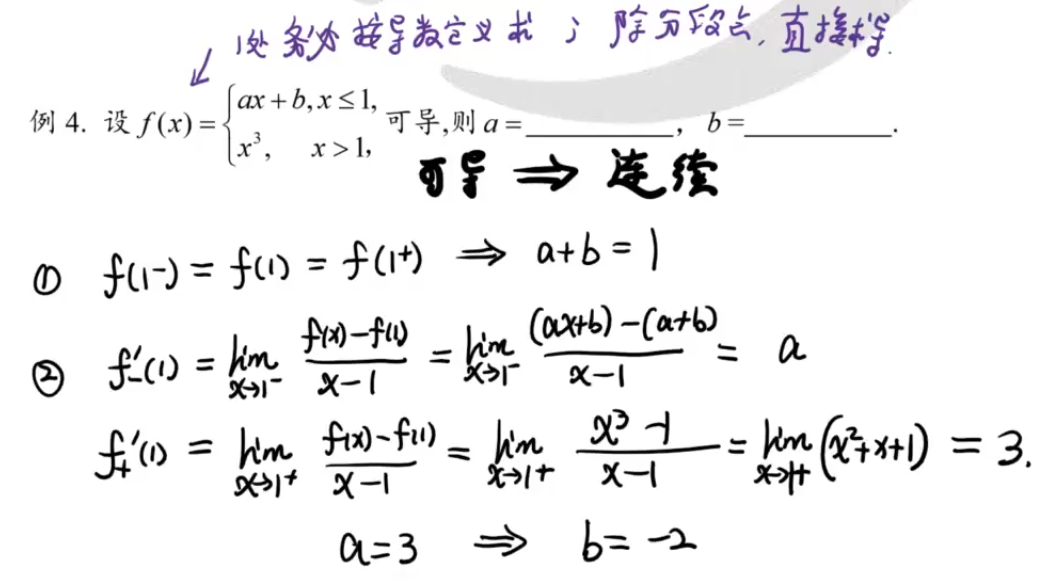 1处务必按导数定义求；除分段点，直接求导.
例 4. 设 f(x)={ax+b, x≤1, x³, x>1, 可导,则 a=__________, b=__________.
可导 ⇒ 连续
① f(1⁻) = f(1) = f(1⁺) ⇒ a+b = 1
② f₋′(1) = lim_{x→1⁻} (f(x)-f(1))/(x-1) = lim_{x→1⁻} ((ax+b)-(a+b))/(x-1) = a
f₊′(1) = lim_{x→1⁺} (f(x)-f(1))/(x-1) = lim_{x→1⁺} (x³-1)/(x-1) = lim_{x→1⁺} (x²+x+1) = 3.
a=3 ⇒ b=-2